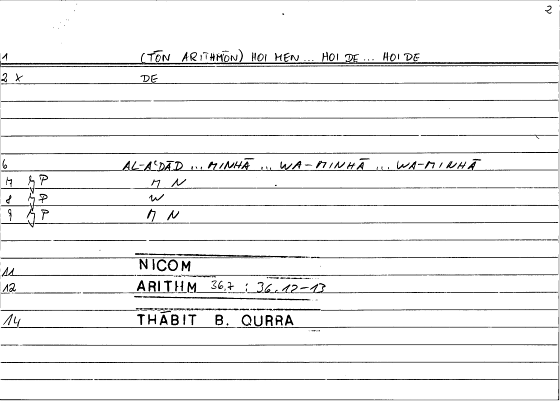 2
1 (TŌN ARITHMŌN) HOI MEN ... HOI DE ... HOI DE
2 X DE
6 AL-AʿDĀD ... MINHĀ ... WA-MINHĀ ... WA-MINHĀ
P M N
8 P W
9 P M N
11 NICOM
12 ARITHM 36,7 : 36,12-13
14 THĀBIT B. QURRA